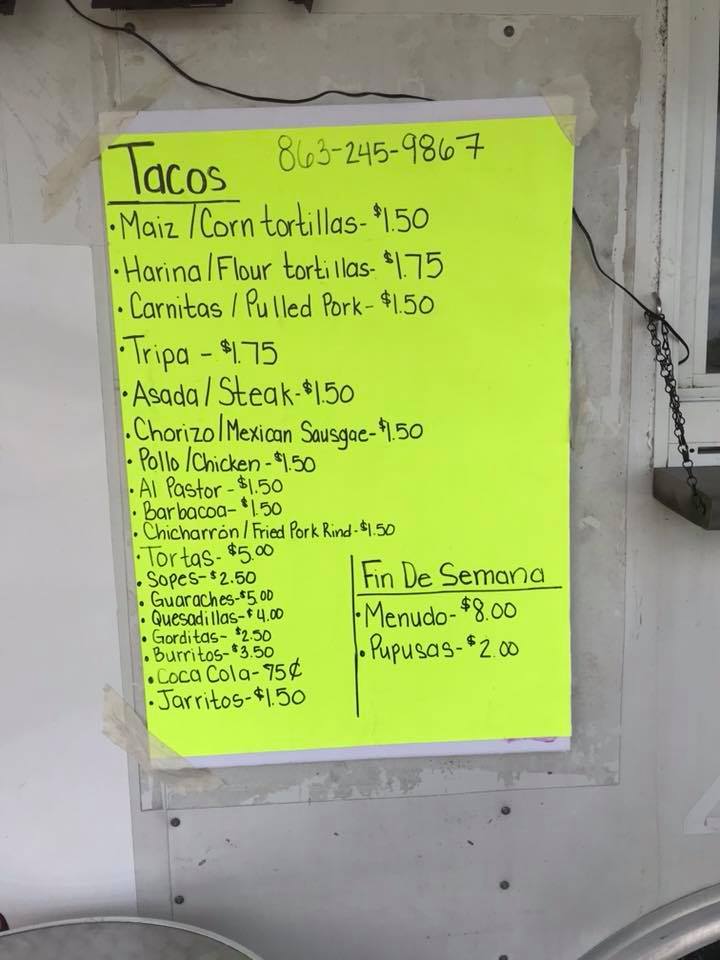 Tacos 863-245-9867
• Maiz / Corn tortillas - $1.50
• Harina / Flour tortillas - $1.75
• Carnitas / Pulled Pork - $1.50
• Tripa - $1.75
• Asada / Steak - $1.50
• Chorizo / Mexican Sausgae - $1.50
• Pollo / Chicken - $1.50
• Al Pastor - $1.50
• Barbacoa - $1.50
• Chicharrón / Fried Pork Rind - $1.50
• Tortas - $5.00
• Sopes - $2.50
• Guaraches - $5.00
• Quesadillas - $4.00
• Gorditas - $2.50
• Burritos - $3.50
• Coca Cola - 75¢
• Jarritos - $1.50
Fin De Semana
• Menudo - $8.00
• Pupusas - $2.00